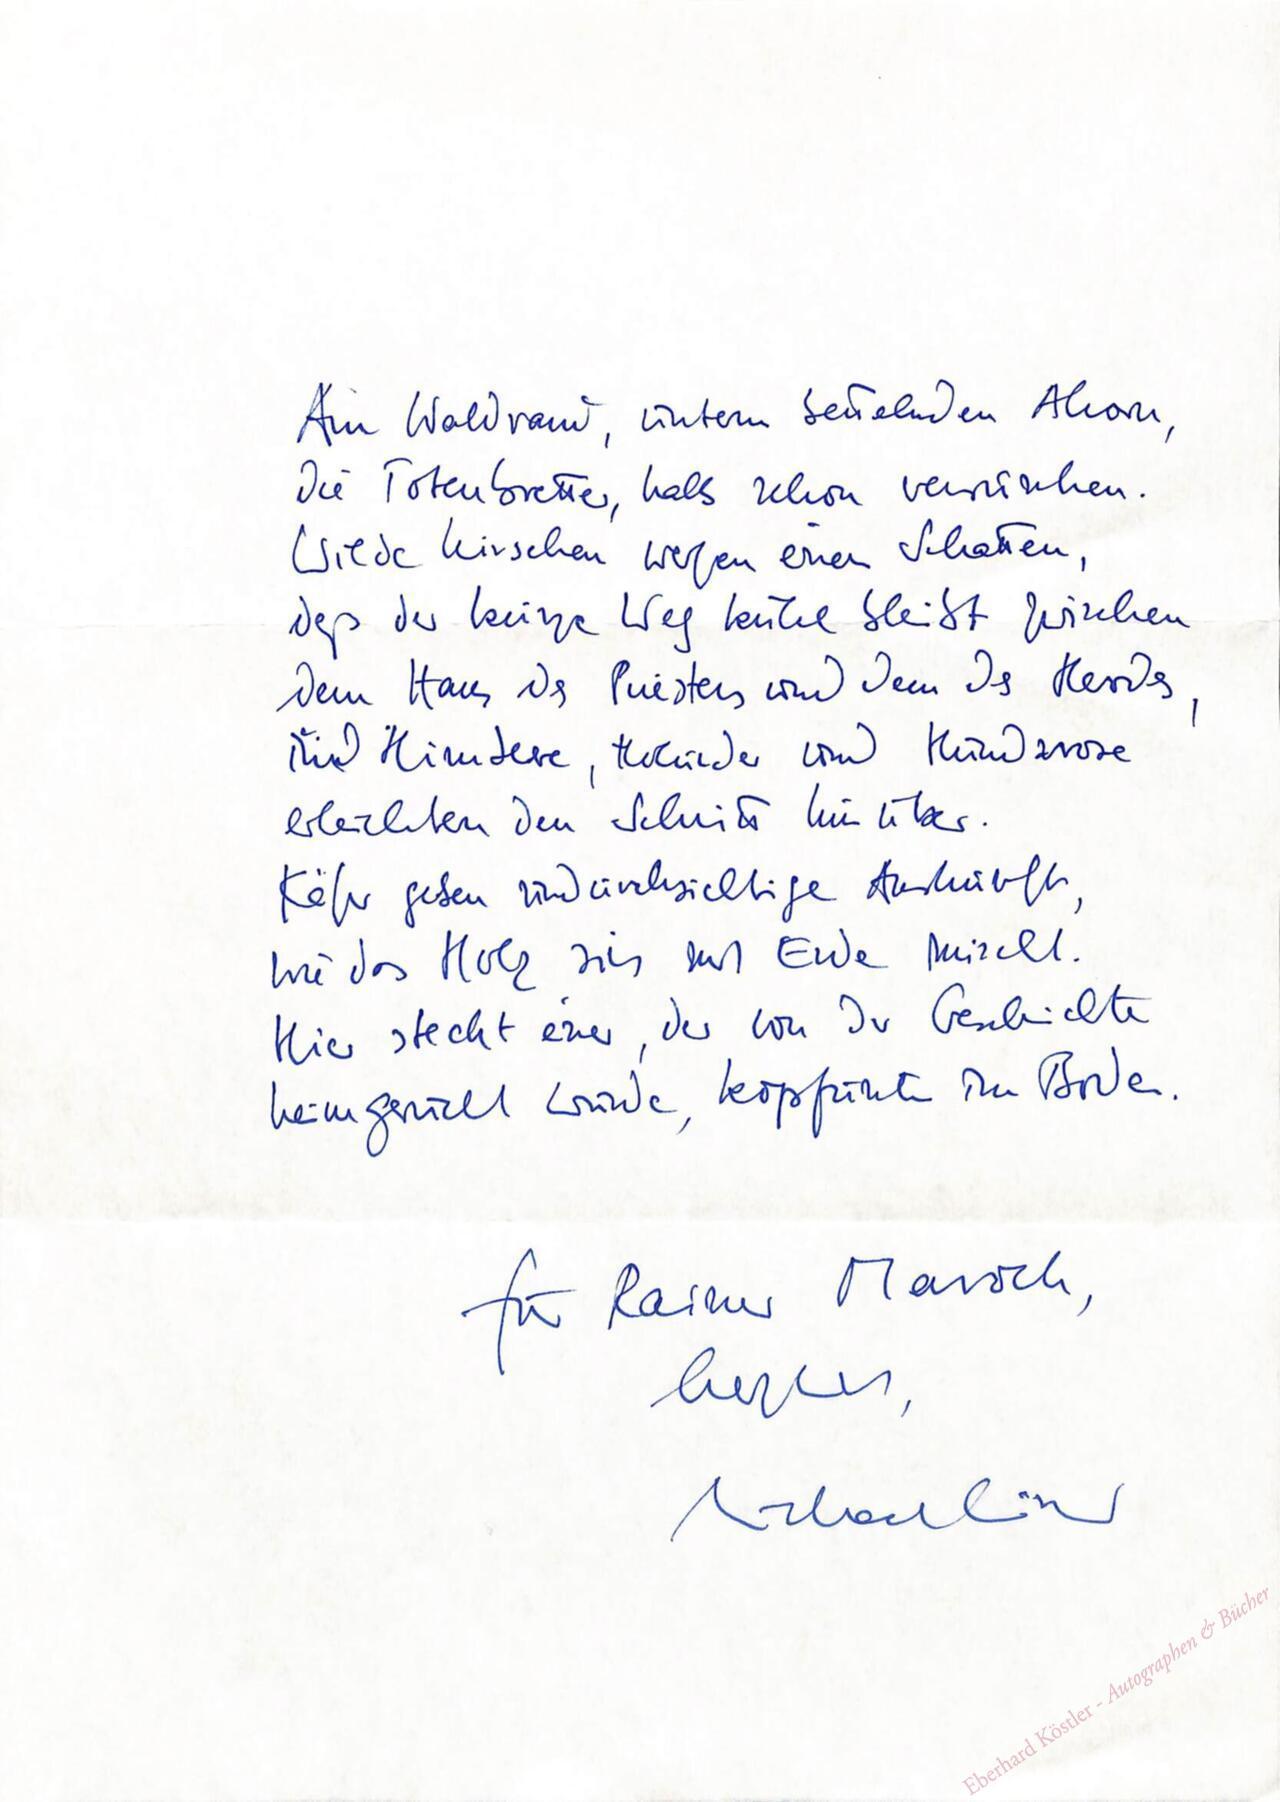 Am Waldrand, unterm Ahorn,
die Totenbretter, halb schon verwischen.
Wilde Kirschen werfen einen Schatten,
daß der kurze Weg kühl bleibt zwischen
dem Haus des Priesters und dem des Herodes,
und Himbeere, Holunder und Hundsrose
erleichtern den Schritt hinüber.
Käfer geben undurchsichtige Auskunft,
wie das Holz sich mit Erde mischt.
Hier steckt einer, der von der Geschichte
heimgesucht wurde, kopfunter im Boden.
für Rainer
herzlich,
Michael Krüger
Eberhard Köstler - Autographen & Bücher